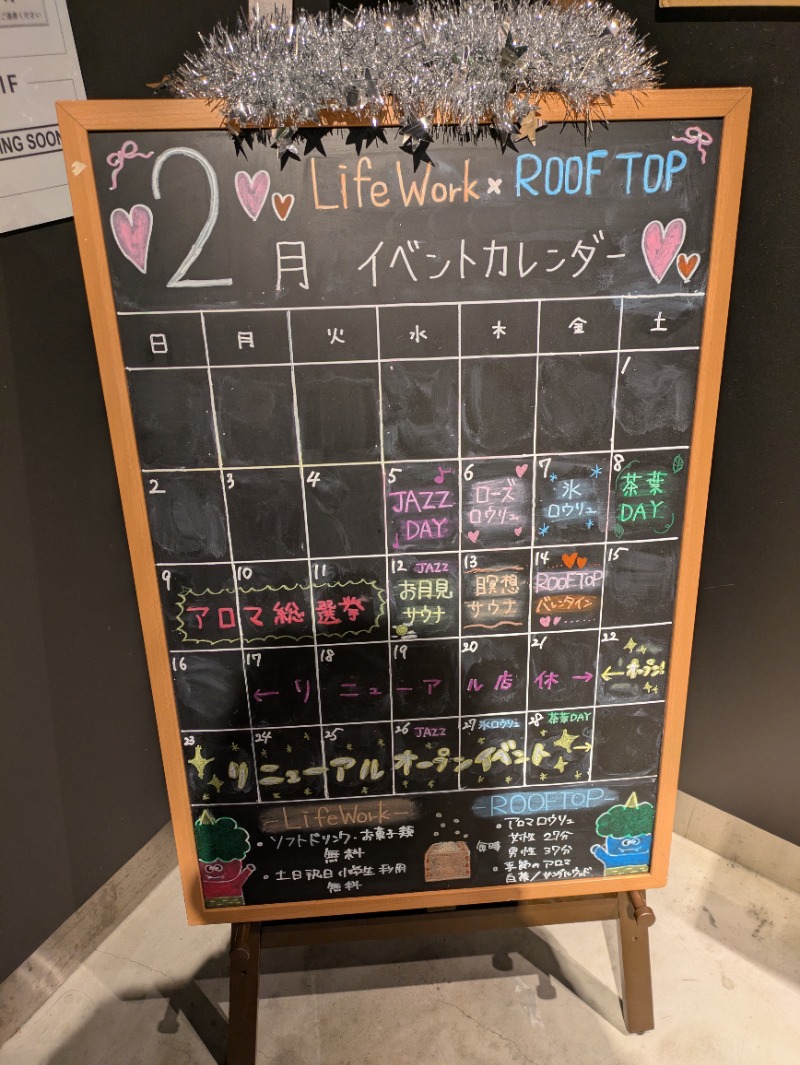 ご遠慮ください
1F
ING SOON
2月
LifeWork × ROOFTOP
イベントカレンダー
日 月 火 水 木 金 土
1
2 3 4 5 6 7 8
JAZZ DAY
ローズ ロウリュ
氷 ロウリュ
茶葉 DAY
9 10 11 12 13 14 15
アロマ総選挙
JAZZ
お月見 サウナ
瞑想 サウナ
ROOFTOP バレンタイン
16 17 18 19 20 21 22
← リニューアル店休 →
← オープン!
23 24 25 26 27 28
JAZZ
氷ロウリュ
茶葉DAY
リニューアルオープンイベント →
-LifeWork-
・ソフトドリンク・お菓子類
無料
・土日祝日 小学生利用
無料
-ROOFTOP-
・アロマロウリュ
毎時
女性 27分
男性 37分
・季節のアロマ
白茶/サンダルウッド